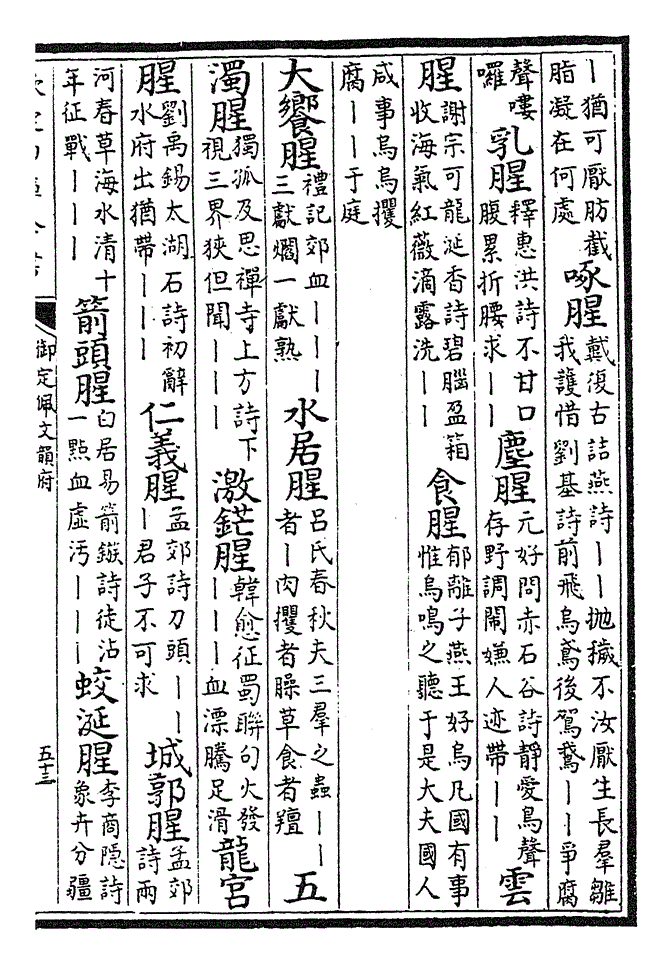 ｜猶可厭肪截脂凝在何處 啄腥 戴復古詰燕詩｜｜抛穢不汝厭生長羣雛我護惜劉基詩前飛烏鳶後駕鵞｜｜爭腐
聲嘍囉 乳腥 釋惠洪詩不甘口腹累折腰求｜｜ 塵腥 元好問赤石谷詩靜愛鳥聲存野調鬧嫌人迹帶｜｜ 雲
腥 謝宗可龍涎香詩碧腦盈箱收海氣紅薇滴露洗｜｜ 食腥 郁離子燕王好烏凡國有事惟烏鳴之聽于是大夫國人
咸事烏烏攫腐｜｜于庭
大饗腥 禮記郊血｜｜｜三獻爓一獻熟 水居腥 呂氏春秋夫三羣之蟲｜｜者｜肉攫者臊草食者羶 五
濁腥 獨孤及思禪寺上方詩下視三界狹但聞｜｜｜ 激鋩腥 韓愈征蜀聯句火發｜｜｜血漂騰足滑 龍宮
腥 劉禹錫太湖石詩初辭水府出猶帶｜｜｜ 仁義腥 孟郊詩刀頭｜｜｜君子不可求 城郭腥 孟郊詩兩
河春草海水清十年征戰｜｜｜ 箭頭腥 白居易箭鏃詩徒沾一點血虛汚｜｜｜ 蛟涎腥 李商隱詩象卉分疆
御定佩文韻府
五十三